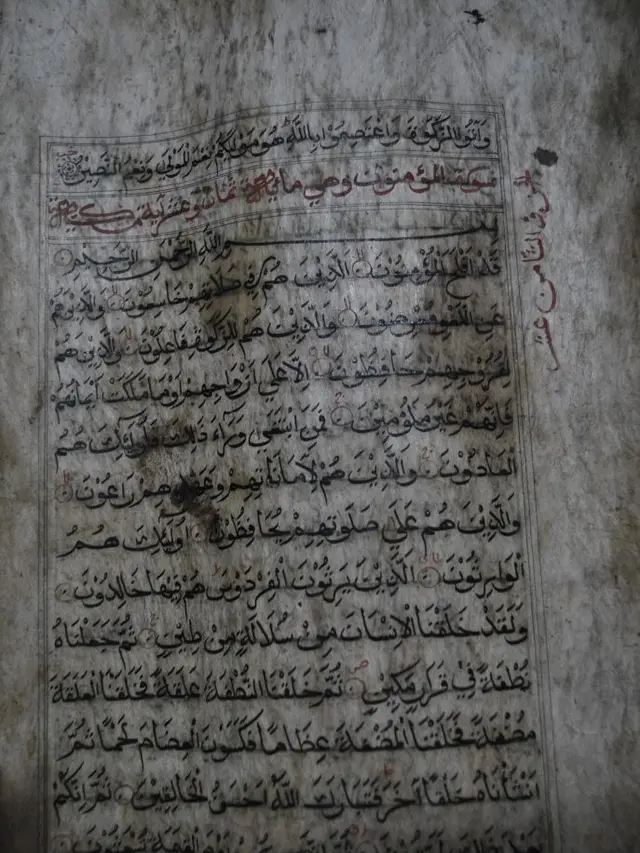 وَآتُوا الزَّكٰوةَ وَاعْتَصِمُوا بِاللّٰهِ هُوَ مَوْلٰيكُمْ فَنِعْمَ الْمَوْلٰى وَنِعْمَ النَّصِيْرُ
سورة المؤمنون وهي مائة
ثمانية عشر آية
بسم الله الرحمن الرحيم
الجزء الثامن عشر
قَدْ اَفْلَحَ الْمُؤْمِنُوْنَ الَّذِيْنَ هُمْ فِيْ صَلَاتِهِمْ خَاشِعُوْنَ وَالَّذِيْنَ هُمْ
عَنِ اللَّغْوِ مُعْرِضُوْنَ وَالَّذِيْنَ هُمْ لِلزَّكٰوةِ فَاعِلُوْنَ وَالَّذِيْنَ هُمْ
لِفُرُوْجِهِمْ حَافِظُوْنَ اِلَّا عَلٰى اَزْوَاجِهِمْ اَوْ مَا مَلَكَتْ اَيْمَانُهُمْ
فَاِنَّهُمْ غَيْرُ مَلُوْمِيْنَ فَمَنِ ابْتَغٰى وَرَآءَ ذٰلِكَ فَاُولٰٓئِكَ هُمُ
الْعَادُوْنَ وَالَّذِيْنَ هُمْ لِاَمَانَاتِهِمْ وَعَهْدِهِمْ رَاعُوْنَ
وَالَّذِيْنَ هُمْ عَلٰى صَلَوٰتِهِمْ يُحَافِظُوْنَ اُولٰٓئِكَ هُمُ
الْوَارِثُوْنَ الَّذِيْنَ يَرِثُوْنَ الْفِرْدَوْسَ هُمْ فِيْهَا خَالِدُوْنَ
وَلَقَدْ خَلَقْنَا الْاِنْسَانَ مِنْ سُلَالَةٍ مِنْ طِيْنٍ ثُمَّ جَعَلْنَاهُ
نُطْفَةً فِيْ قَرَارٍ مَكِيْنٍ ثُمَّ خَلَقْنَا النُّطْفَةَ عَلَقَةً فَخَلَقْنَا الْعَلَقَةَ
مُضْغَةً فَخَلَقْنَا الْمُضْغَةَ عِظَامًا فَكَسَوْنَا الْعِظَامَ لَحْمًا ثُمَّ
اَنْشَأْنَاهُ خَلْقًا آخَرَ فَتَبَارَكَ اللّٰهُ اَحْسَنُ الْخَالِقِيْنَ ثُمَّ اِنَّكُمْ